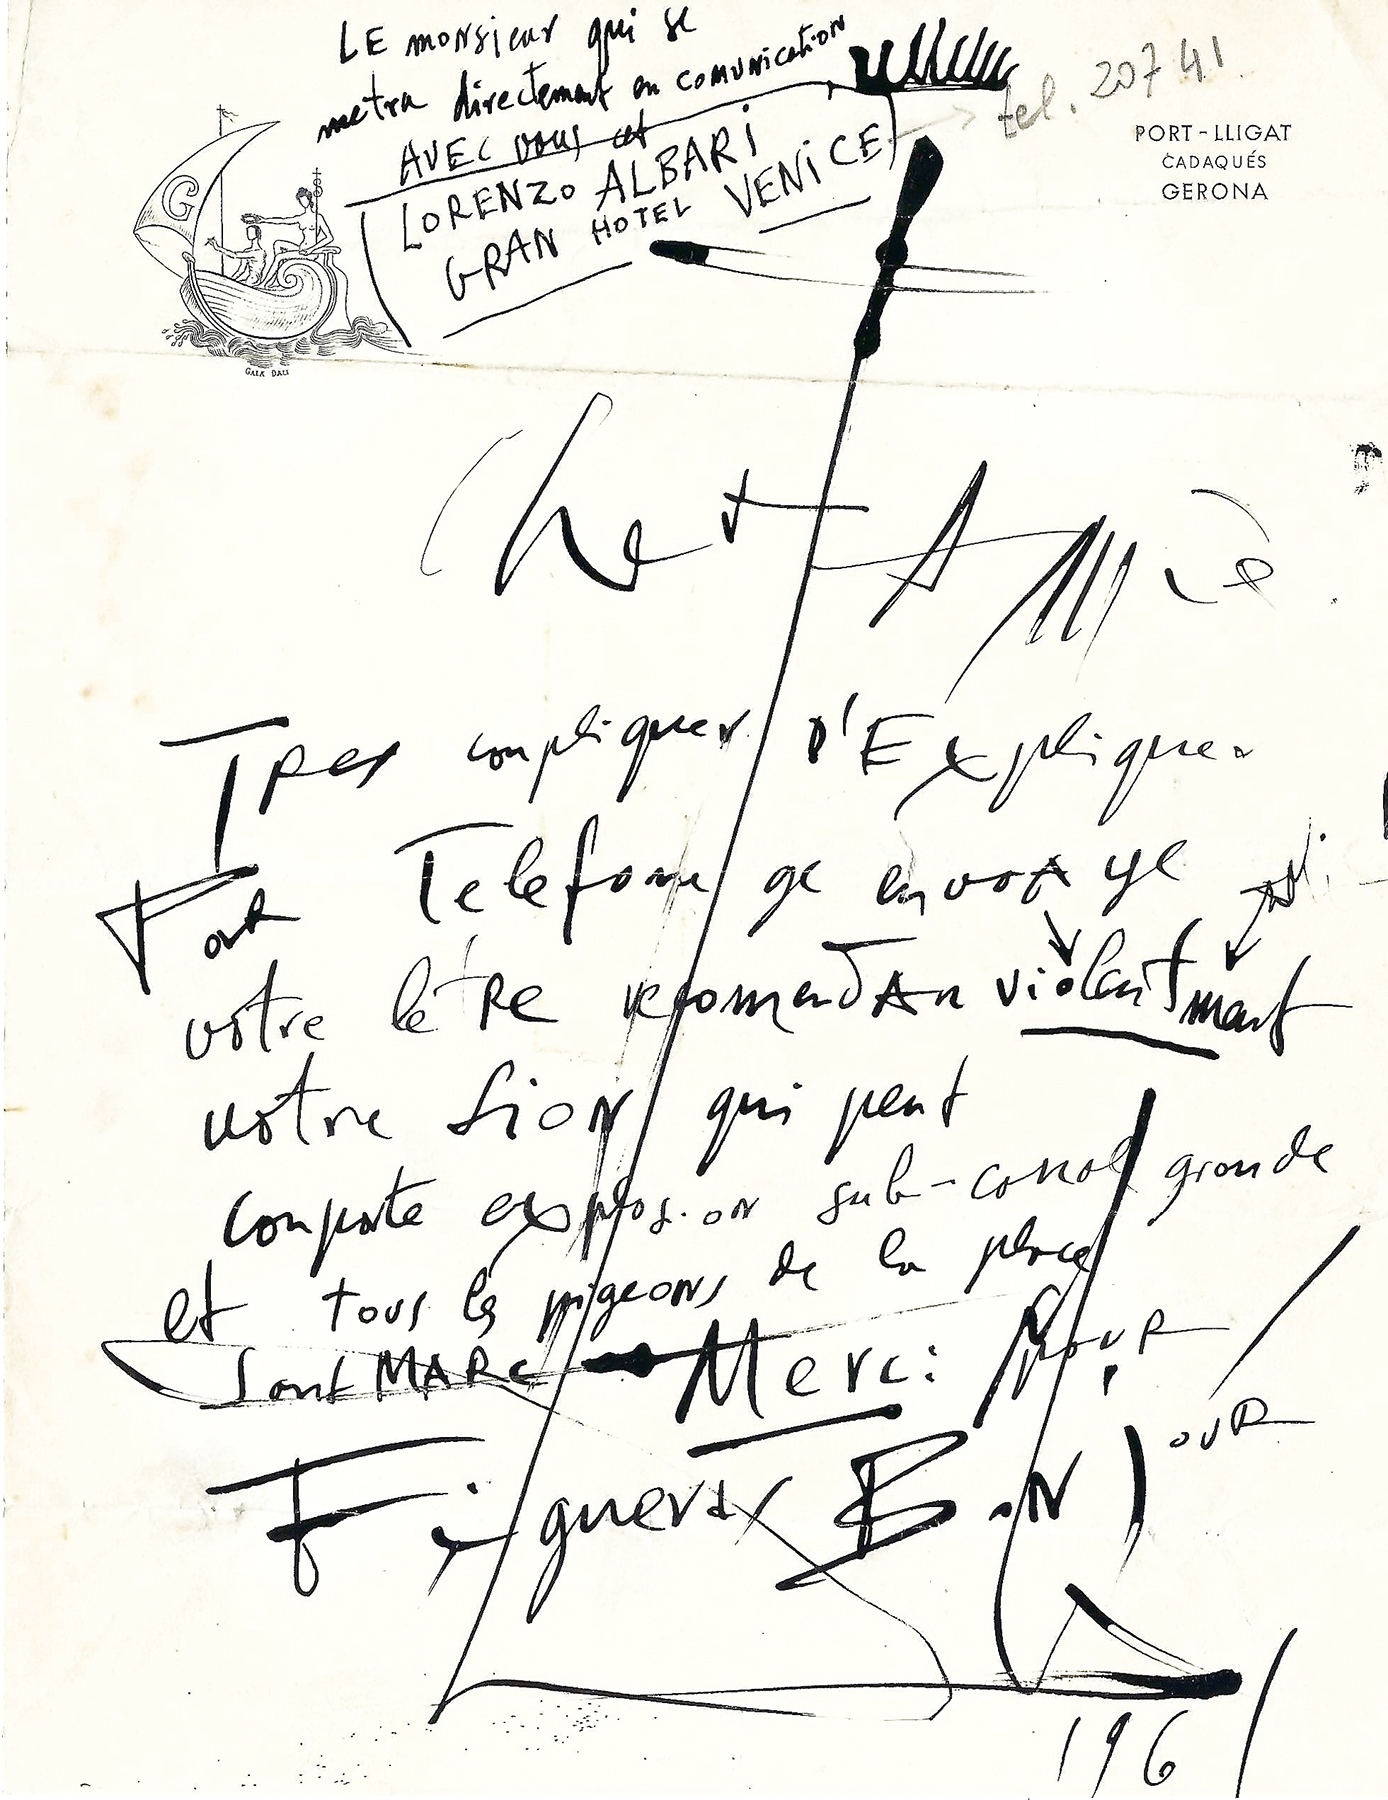 LE monsieur qui se
metra directement en comunication
AVEC vous est
LORENZO ALBARI
GRAN HOTEL VENICE
tel. 207 41
PORT-LLIGAT
CADAQUÉS
GERONA
G
GALA DALI
Cher Amie
Tres conpliquer d'Expliquer
Par Telefone ge envoye
votre letre recomendAn violentment
votre
qui peut
conporte explosion sub-canal grande
et tous les pigeons de la place
Sant MARC Merci POUR
Figueras BonJOUR
1961